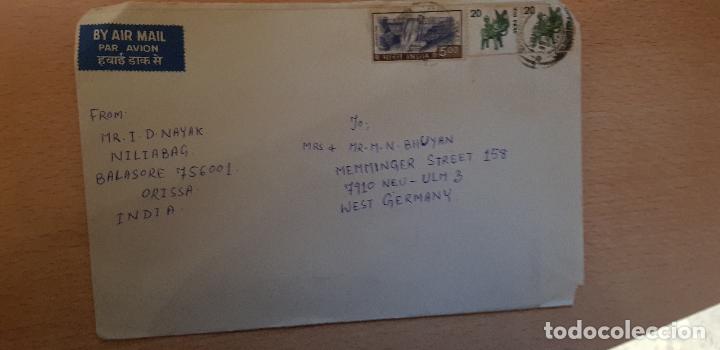 BY AIR MAIL
PAR AVION
हवाई डाक से
5.00
भारत INDIA
20
20
FROM:
MR. I. D. NAYAK
NILIABAG.
BALASORE 756001.
ORISSA.
INDIA.
To;
MRS + MR. M. N. BHUYAN
MEMMINGER STREET 158
7910 NEU-ULM 3
WEST GERMANY
todocoleccion.net